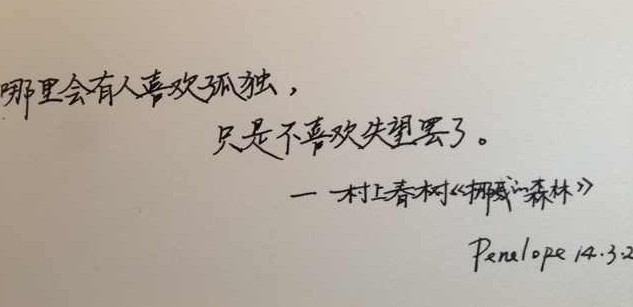 哪里会有人喜欢孤独，
只是不喜欢失望罢了。
——村上春树《挪威的森林》
Penelope 14.3.2